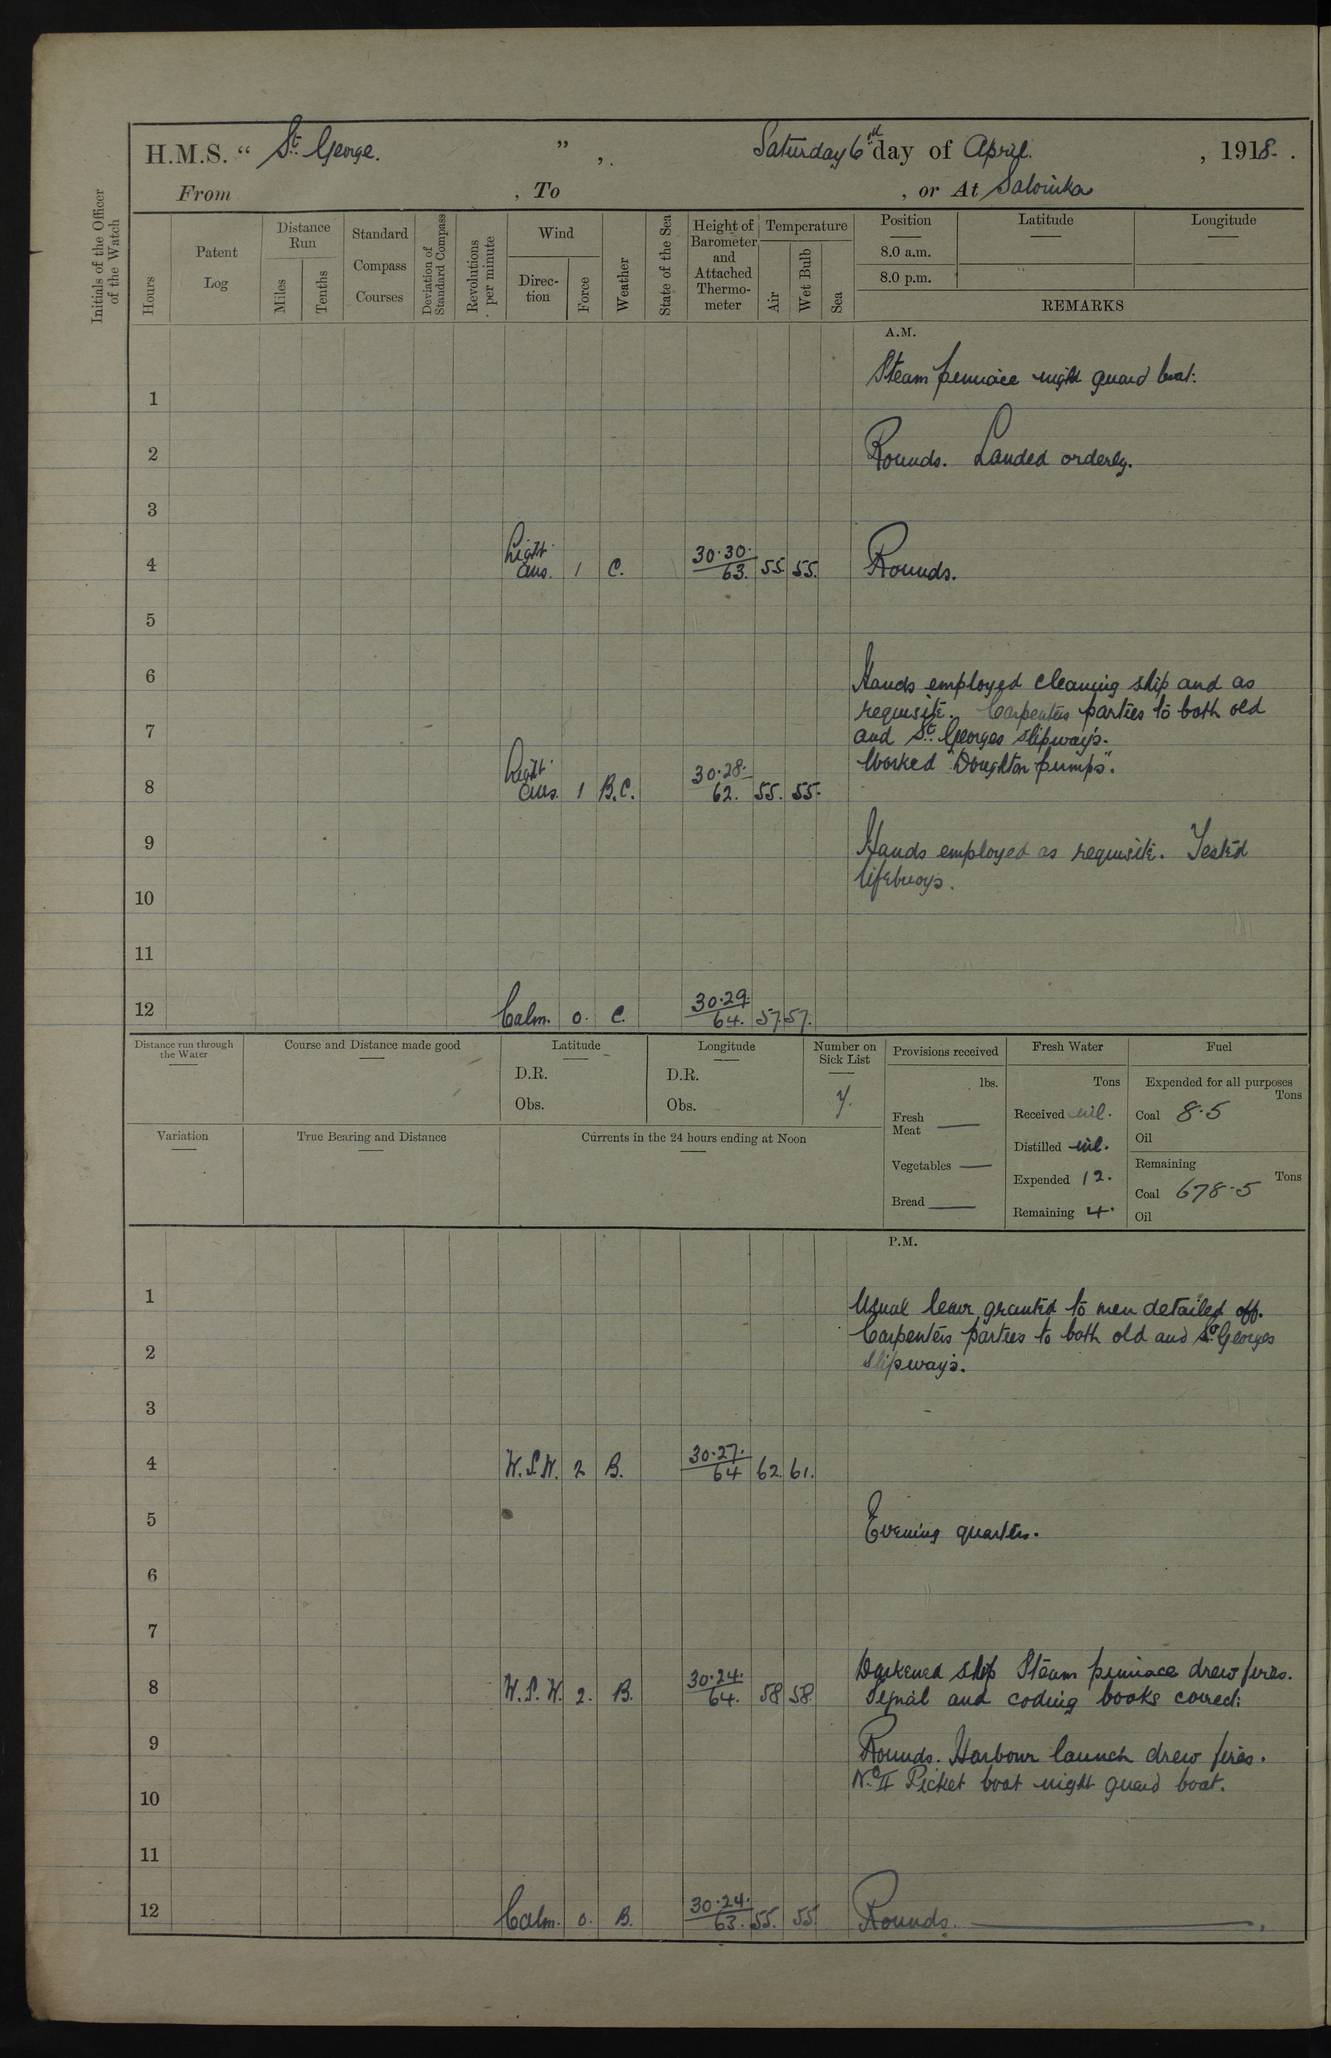 H.M.S. “ St. George. ” , Saturday 6 day of April. , 1918 .
From , To , or At Salonika
Initials of the Officer of the Watch
Hours
Patent Log
Distance Run
Miles
Tenths
Standard Compass Courses
Deviation of Standard Compass
Revolutions per minute
Wind
Direction
Force
Weather
State of the Sea
Height of Barometer and Attached Thermometer
Temperature
Air
Wet Bulb
Sea
Position Latitude Longitude
8.0 a.m.
8.0 p.m.
REMARKS
A.M.
Steam pinnace night guard boat.
1
2 Rounds. Landed orderly.
3
4 Light airs. 1 C. 30.30. 63. 55 55. Rounds.
5
6 Hands employed cleaning ship and as
requisite. Carpenters parties to both old
7 and St. Georges slipways.
Worked "Doughton pumps".
8 Light airs. 1 B.C. 30.28. 62. 55. 55.
9 Hands employed as requisite. Tested
lifebuoys.
10
11
12 Calm. 0. C. 30.29. 64. 57. 57.
Distance run through the Water
Course and Distance made good
Latitude
D.R.
Obs.
Longitude
D.R.
Obs.
Number on Sick List
7.
Provisions received
lbs.
Fresh Meat —
Vegetables —
Bread —
Fresh Water
Tons
Received nil.
Distilled nil.
Expended 12.
Remaining 4.
Fuel
Expended for all purposes
Tons
Coal 8.5
Oil
Remaining
Tons
Coal 678.5
Oil
Variation
True Bearing and Distance
Currents in the 24 hours ending at Noon
P.M.
1 Usual leave granted to men detailed off.
Carpenters parties to both old and St. Georges
2 slipways.
3
4 W.S.W. 2 B. 30.27. 64 62 61.
5 Evening quarters.
6
7
Darkened ship Steam pinnace drew fires.
8 W.S.W. 2. B. 30.24. 64. 58 58. Signal and coding books correct.
9 Rounds. Harbour launch drew fires.
No. II Picket boat night guard boat.
10
11
12 Calm. 0. B. 30.24. 63. 55. 55. Rounds.